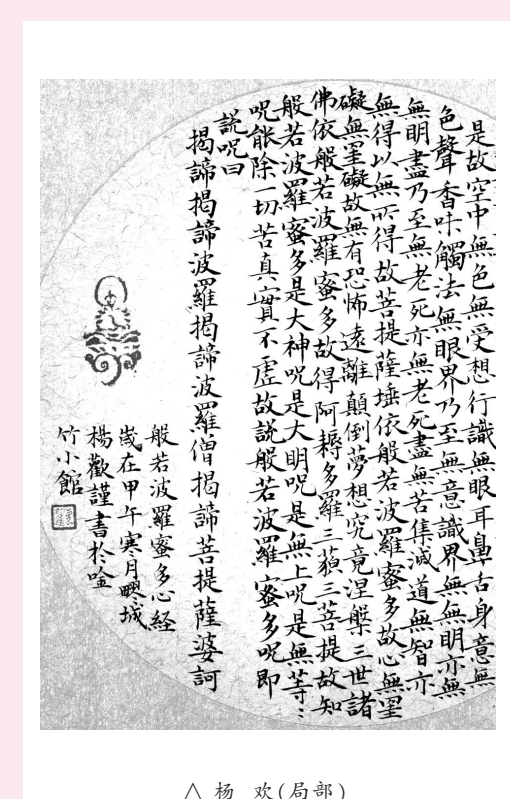 是故空中無色無受想行識無眼耳鼻舌身意無
色聲香味觸法無眼界乃至無意識界無無明亦無
無明盡乃至無老死亦無老死盡無苦集滅道無智亦
無得以無所得故菩提薩埵依般若波羅蜜多故心無罣
礙無罣礙故無有恐怖遠離顛倒夢想究竟涅槃三世諸
佛依般若波羅蜜多故得阿耨多羅三藐三菩提故知
般若波羅蜜多是大神呪是大明呪是無上呪是無等〻
呪能除一切苦真實不虛故說般若波羅蜜多呪即
說呪曰
揭諦揭諦波羅揭諦波羅僧揭諦菩提薩婆訶
般若波羅蜜多心経
歲在甲午寒月疁城
楊歡謹書於唫
竹小館
△ 杨 欢(局部)